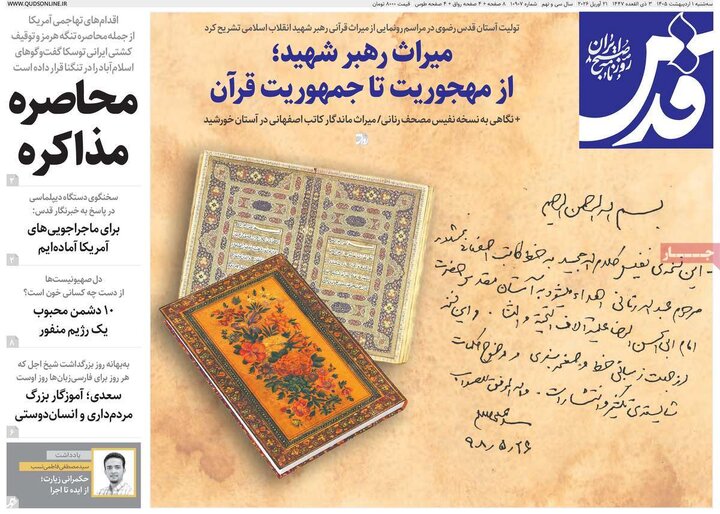 WWW.QUDSONLINE.IR
سه‌شنبه ۱ اردیبهشت ۱۴۰۵ ۳ ذی القعده ۱۴۴۷ ۲۱ آوریل ۲۰۲۶ سال سی و نهم شماره ۱۰۹۰۷ ۸ صفحه + ۴ صفحه رواق + ۴ صفحه طوسی قیمت ۸۰۰۰ تومان
قدس
روزنامه صبح ایران
تولیت آستان قدس رضوی در مراسم رونمایی از میراث قرآنی رهبر شهید انقلاب اسلامی تشریح کرد
میراث رهبر شهید؛
از مهجوریت تا جمهوریت قرآن
+ نگاهی به نسخه نفیس مصحف رنانی/ میراث ماندگار کاتب اصفهانی در آستان خورشید
بسم الله الرحمن الرحیم
این نسخه‌ی نفیس کلام الله مجید به خط کاتب اصفهانی
مرحوم رنانی اهداء میشود به آستان مقدس حضرت
امام ابی الحسن الرضا علیه آلاف التحیة والثناء. و این نسخه
از جهت زیبائی خط و صفحه‌بندی و وضوح کلمات
شایسته‌ی تکثیر و انتشار است. والله الموفق للصواب
۹۸/۵/۲۶
جـار
اقدام‌های تهاجمی آمریکا
از جمله محاصره تنگه هرمز و توقیف
کشتی ایرانی توسکا گفت‌وگوهای
اسلام‌آباد را در تنگنا قرار داده است
محاصره
مذاکره
۲
سخنگوی دستگاه دیپلماسی
در پاسخ به خبرنگار قدس:
برای ماجراجویی‌های
آمریکا آماده‌ایم
۲
دل صهیونیست‌ها
از دست چه کسانی خون است؟
۱۰ دشمن محبوب
یک رژیم منفور
۸
به‌بهانه روز بزرگداشت شیخ اجل که
هر روز برای فارسی‌زبان‌ها روز اوست
سعدی؛ آموزگار بزرگ
مردم‌داری و انسان‌دوستی
۶
یادداشت
سیدمصطفی فاطمی‌نسب
حکمرانی زیارت؛
از ایده تا اجرا